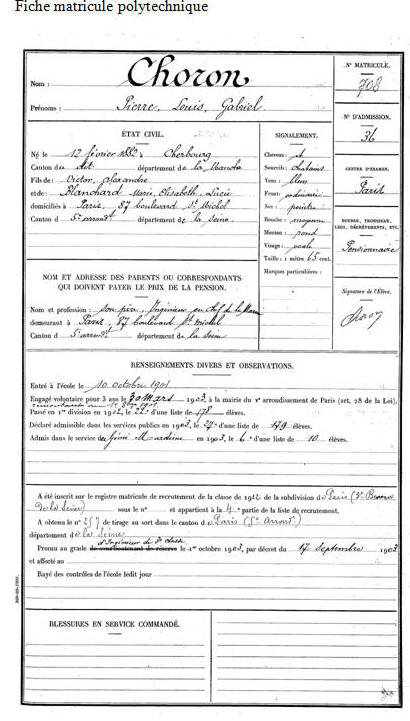 Fiche matricule polytechnique
Nom : Choron
Prénoms : Pierre, Louis, Gabriel
ÉTAT CIVIL.
Né le 12 février 1882 à Cherbourg
Canton du dit département de la Manche
Fils de : Victor, Alexandre
et de : Blanchard Marie, Elisabeth, Lucie
domiciliés à Paris, 87 boulevard St Michel
Canton d 5e arrondt département de la Seine
SIGNALEMENT.
Cheveux : et
Sourcils : Chatains
Yeux : bleus
Front : ordinaire
Nez :
Bouche : moyenne
Menton : rond
Visage : ovale
Taille : 1 mètre 65 cent.
Marques particulières :
N° MATRICULE.
708
N° D'ADMISSION.
36
CENTRE D'EXAMEN.
Paris
BOURSE, TROUSSEAU, LEGS, DÉGRÈVEMENTS, ETC.
Pensionnaire
Signature de l'Élève.
Choron
NOM ET ADRESSE DES PARENTS OU CORRESPONDANTS
QUI DOIVENT PAYER LE PRIX DE LA PENSION.
Nom et profession : son père, Ingénieur en chef de la Marine
demeurant à Paris, 87 boulevard St Michel
Canton d 5e arrondt département de la Seine
RENSEIGNEMENTS DIVERS ET OBSERVATIONS.
Entré à l'école le 10 octobre 1901
Engagé volontaire pour 3 ans le 30 Mars 1903, à la mairie du Ve arrondissement de Paris (art. 28 de la Loi).
Passé en 1re division en 1902, le 22e d'une liste de 178 élèves.
Déclaré admissible dans les services publics en 1903, le 27e d'une liste de 179 élèves.
Admis dans le service de Génie Maritime en 1903, le 6e d'une liste de 10 élèves.
A été inscrit sur le registre matricule de recrutement de la classe de 1902 de la subdivision d Paris
de la Seine) sous le n° et appartient à la 4e partie de la liste de recrutement.
A obtenu le n° 257 de tirage au sort dans le canton d Paris (5e Arrondt)
département d la Seine
d'Ingénieur de 3e classe
Promu au grade de sous-lieutenant de réserve le 1er octobre 1903, par décret du 17 septembre 1903
et affecté au
Rayé des contrôles de l'école ledit jour
BLESSURES EN SERVICE COMMANDÉ.